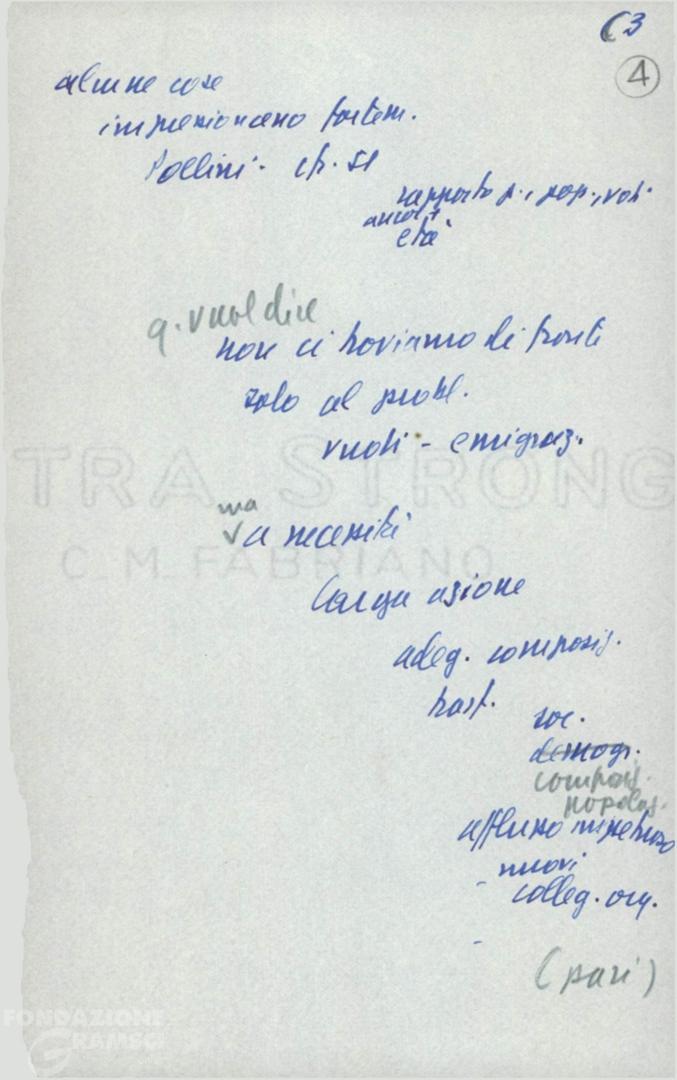 63
4
alcune cose
impressionano fortem.
Pollini. cfr. 51
rapporto p., pop., voti
ancor +
età
q. vuol dire
non ci troviamo di fronte
solo al probl.
vuoti - emigraz.
ma
a necessità
larga azione
adeg. composiz.
trasf.
soc.
demogr.
composiz.
popolaz.
afflusso impetuoso
- nuovi
colleg. org.
-
(pari)
TRA STRONG
C. M. FABRIANO
FONDAZIONE
GRAMSCI